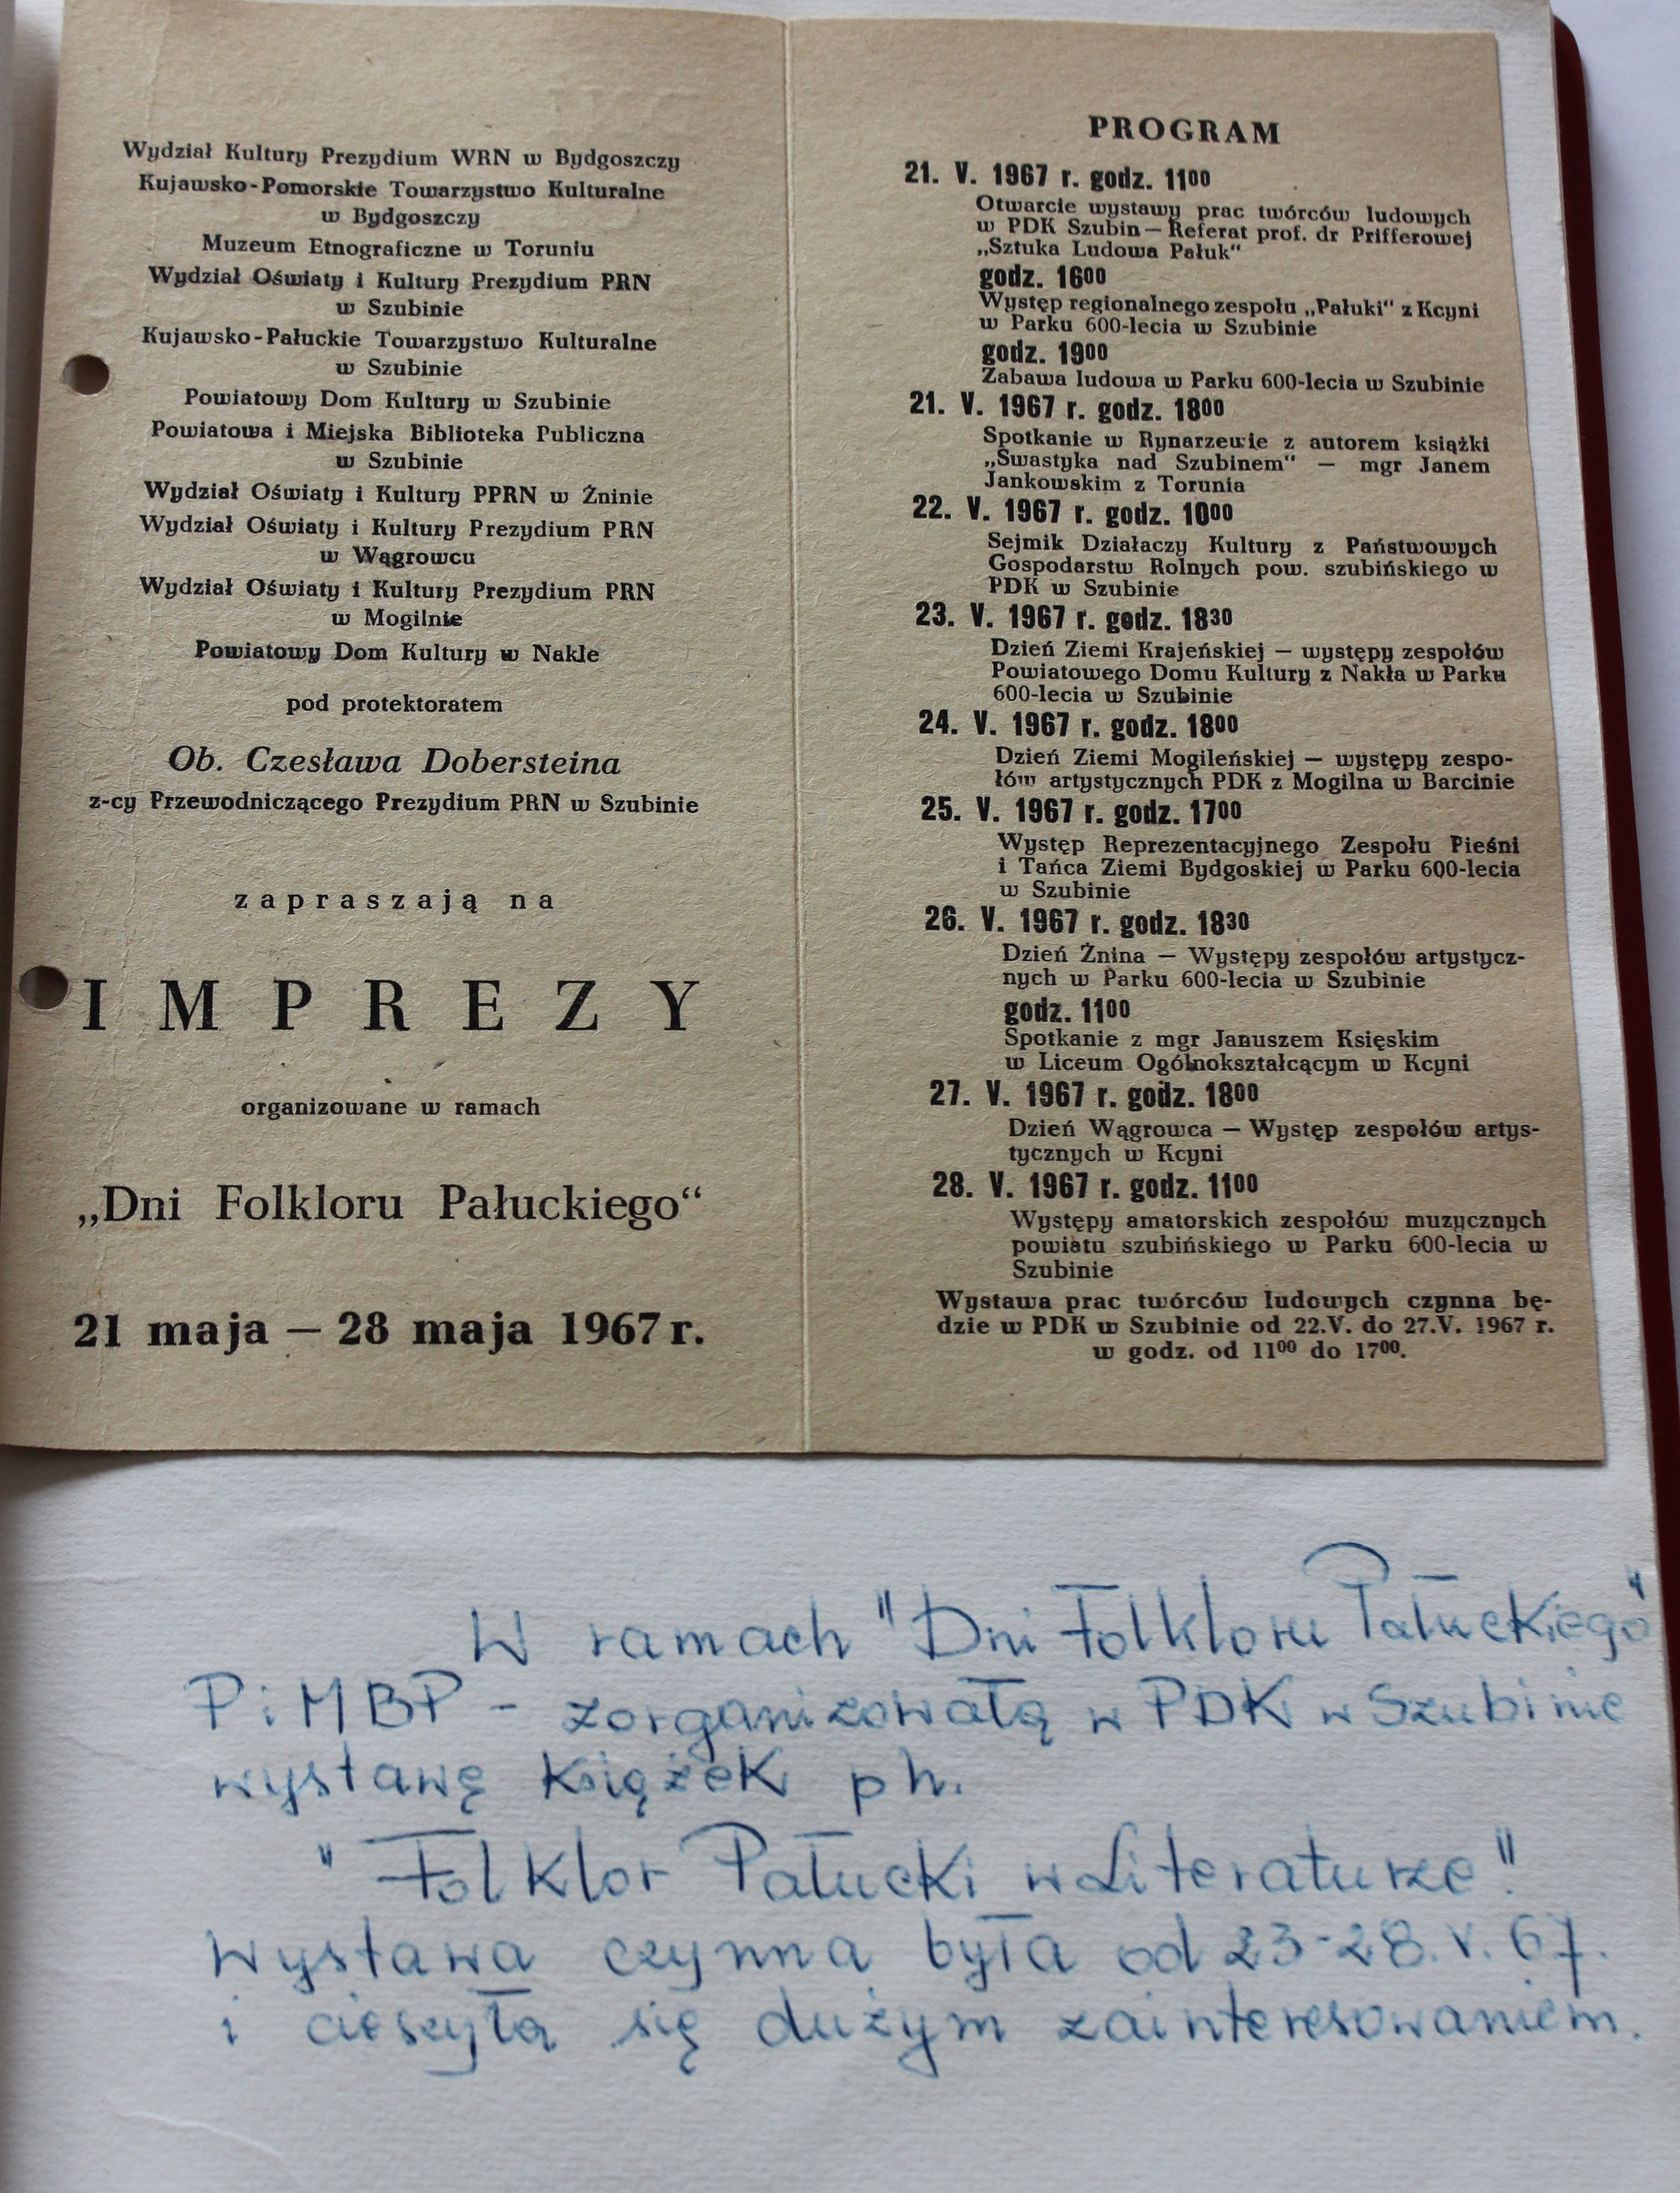 Wydział Kultury Prezydium WRN w Bydgoszczy
Kujawsko-Pomorskie Towarzystwo Kulturalne
w Bydgoszczy
Muzeum Etnograficzne w Toruniu
Wydział Oświaty i Kultury Prezydium PRN
w Szubinie
Kujawsko-Pałuckie Towarzystwo Kulturalne
w Szubinie
Powiatowy Dom Kultury w Szubinie
Powiatowa i Miejska Biblioteka Publiczna
w Szubinie
Wydział Oświaty i Kultury PPRN w Żninie
Wydział Oświaty i Kultury Prezydium PRN
w Wągrowcu
Wydział Oświaty i Kultury Prezydium PRN
w Mogilnie
Powiatowy Dom Kultury w Nakle
pod protektoratem
Ob. Czesława Dobersteina
z-cy Przewodniczącego Prezydium PRN w Szubinie
zapraszają na
IMPREZY
organizowane w ramach
„Dni Folkloru Pałuckiego“
21 maja — 28 maja 1967 r.
PROGRAM
21. V. 1967 r. godz. 11⁰⁰
Otwarcie wystawy prac twórców ludowych
w PDK Szubin — Referat prof. dr Prifferowej
„Sztuka Ludowa Pałuk“
godz. 16⁰⁰
Występ regionalnego zespołu „Pałuki“ z Kcyni
w Parku 600-lecia w Szubinie
godz. 19⁰⁰
Zabawa ludowa w Parku 600-lecia w Szubinie
21. V. 1967 r. godz. 18⁰⁰
Spotkanie w Rynarzewie z autorem książki
„Swastyka nad Szubinem“ — mgr Janem
Jankowskim z Torunia
22. V. 1967 r. godz. 10⁰⁰
Sejmik Działaczy Kultury z Państwowych
Gospodarstw Rolnych pow. szubińskiego w
PDK w Szubinie
23. V. 1967 r. godz. 18³⁰
Dzień Ziemi Krajeńskiej — występy zespołów
Powiatowego Domu Kultury z Nakła w Parku
600-lecia w Szubinie
24. V. 1967 r. godz. 18⁰⁰
Dzień Ziemi Mogileńskiej — występy zespo-
łów artystycznych PDK z Mogilna w Barcinie
25. V. 1967 r. godz. 17⁰⁰
Występ Reprezentacyjnego Zespołu Pieśni
i Tańca Ziemi Bydgoskiej w Parku 600-lecia
w Szubinie
26. V. 1967 r. godz. 18³⁰
Dzień Żnina — Występy zespołów artystycz-
nych w Parku 600-lecia w Szubinie
godz. 11⁰⁰
Spotkanie z mgr Januszem Księskim
w Liceum Ogólnokształcącym w Kcyni
27. V. 1967 r. godz. 18⁰⁰
Dzień Wągrowca — Występ zespołów artys-
tycznych w Kcyni
28. V. 1967 r. godz. 11⁰⁰
Występy amatorskich zespołów muzycznych
powiatu szubińskiego w Parku 600-lecia w
Szubinie
Wystawa prac twórców ludowych czynna bę-
dzie w PDK w Szubinie od 22.V. do 27.V. 1967 r.
w godz. od 11⁰⁰ do 17⁰⁰.
W ramach "Dni Folkloru Pałuckiego"
PiMBP - zorganizowałą w PDK w Szubinie
wystawę książek ph.
"Folklor Pałucki w Literaturze"
wystawa czynna była od 23-28.V.67.
i cieszyła się dużym zainteresowaniem.